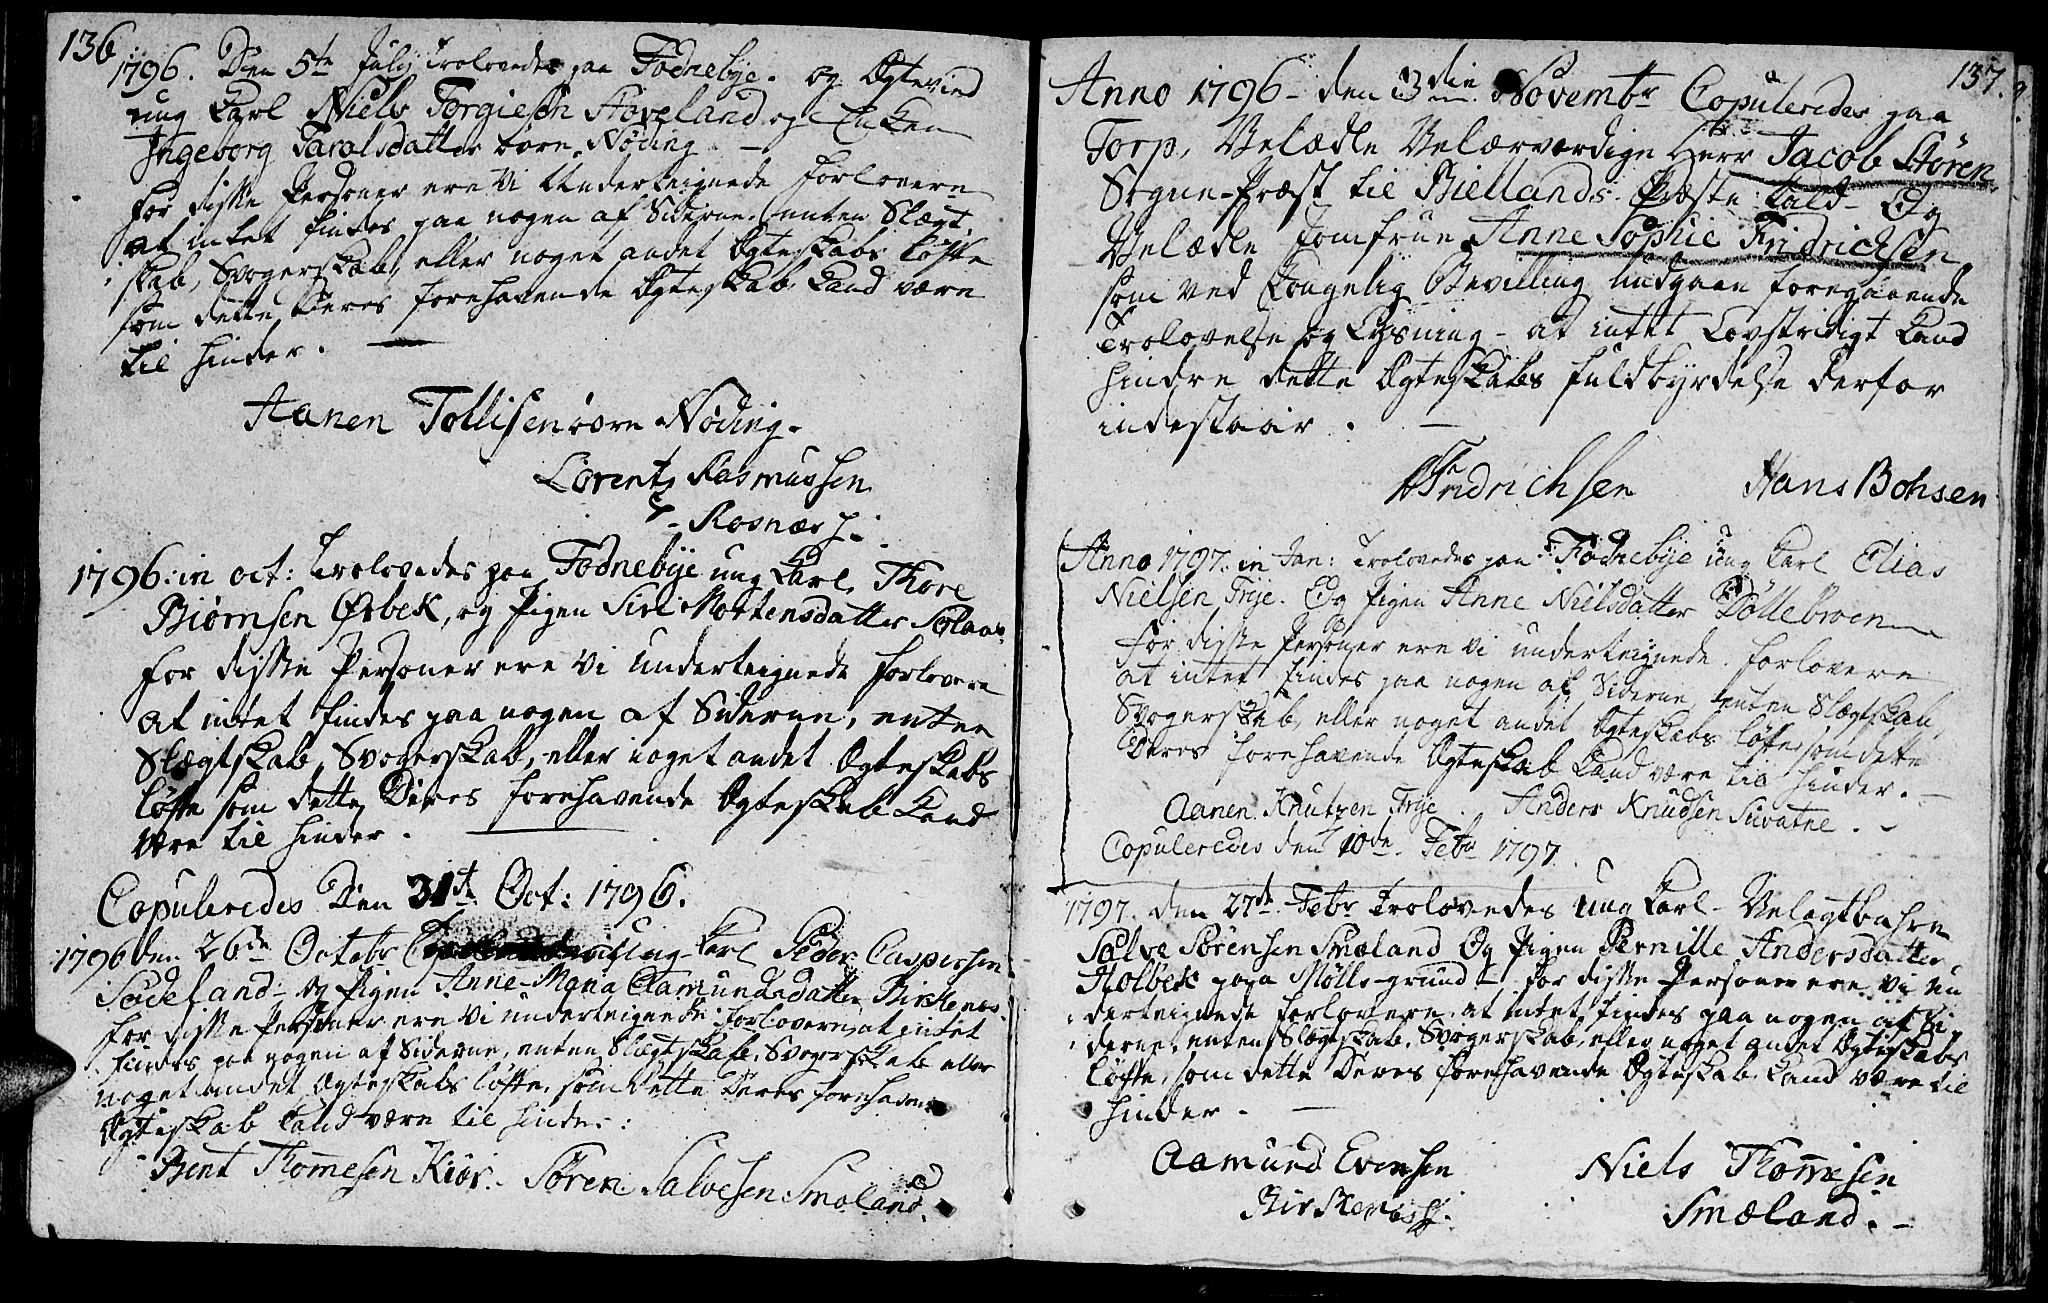 136
1796. Den 5te July Trolovedes paa Fodnebÿe. og Ægtevied
ung Karl Niels Torgiesen Hoveland og Enken
Ingeborg Taralsdatter Nøding. –
For disse Personer ere Vi Underteignede Forlovere
at intet findes paa nogen af Siderne, enten Slægt
skab, Svogerskab, eller noget andet Ægteskabs Løfte
som dette Deres forehavende Ægteskab kand være
til hinder. –
Aanen Tollisen Nøding.
Lorentz Rasmussen
Rosnæs
1796: in oct: Trolovedes paa Fodnebÿe ung Karl, Thore
Biørnsen Ørbek, og Pigen Siri Mortensdatter Solaas
For disse Personer ere Vi underteignede Forlovere
at intet findes paa nogen af Siderne, enten
Slægtskab, Svogerskab, eller noget andet Ægteskabs
Løfte som dette Deres forehavende Ægteskab kand
være til hinder. –
Copuleredes Den 31te Oct: 1796.
1796 den 26de Octobr ung Karl Peder Caspersen
Sødeland og Pigen Anne Maria Aamundsdatter Birkenes.
For disse Personer ere Vi underteignede Forlovere, at intet
findes paa nogen af Siderne, enten Slægtskab, Svogerskab eller
noget andet Ægteskabs Løfte, som dette Deres forehavende
Ægteskab kand være til hinder:
Bent Thom̄esen Kiør. Sören Salvesen Smoland.
137.
Anno 1796 – den 3die Novembr Copuleredes paa
Torp, Velædle Velærværdige Herr Jacob Stören
Sogne-Præst til Biellands Præste-Kald – Og
Velædle Jomfrue Anne Sophie Fridrichsen
som ved Kongelig Bevilling undgaaer foregaaende
Trolovelse og Lysning – at intet Lovstridigt kand
hindre dette Ægteskabs fuldbyrdelse derfor
indestaar. –
Fridrichsen Hans Bohsen
Anno 1797. in Jan: Trolovedes paa Fodnebÿe ung Karl Elias
Nielsen Trÿe. Og Pigen Anne Nielsdatter Döllebroen
For disse Personer ere Vi underteignede Forlovere
at intet findes paa nogen af Siderne, enten Slægtskab,
Svogerskab, eller noget andet Ægteskabs Løfte, som dette
Deres forehavende Ægteskab kand være til hinder. –
Aanen Knutzen Trÿe. Anders Knudsen Suvatne. –
Copuleredes den 10de Febr 1797.
1797. den 27de Febr Trolovedes ung Karl – Velagtbahre
Salve Sørensen Smæland Og Pigen Pernille Andersdatter
Holbek paa Mølls-grund – For disse Personer ere Vi un
derteignede Forlovere, at intet findes paa nogen af Si
derne, enten Slægtskab, Svogerskab, eller noget andet Ægteskabs
Løfte, som dette Deres forehavende Ægteskab kand være til
hinder. –
Aamund Evensen Niels Thom̄esen
Birkenes Smæland. –